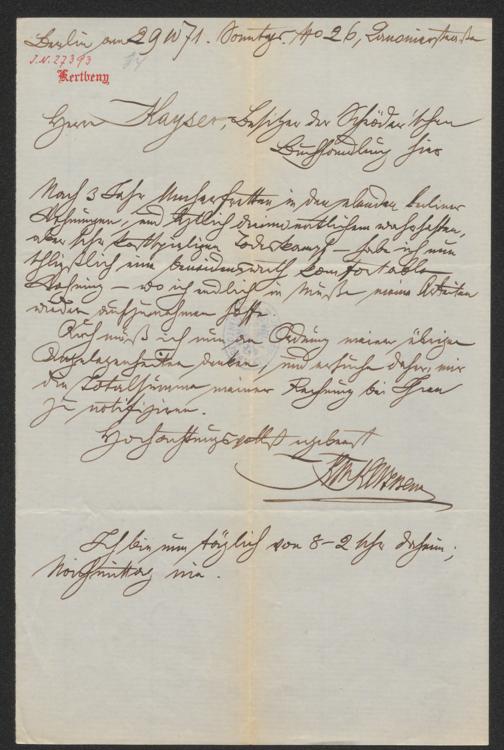 Berlin am 29 IV 71. Sonntgs. No 26, Kanonierstrasse
J.N. 27393
Kertbeny
Herrn Kayser, Besitzer der Schröder'schen
Buchhandlung hier
Nach 3 Jahr in den elenden Berliner
Wohnungen, und letztlich wahrhaften,
aber sehr kostspieligen Todeskampf – habe ich nun
schließlich eine beneidenswerth komfortable
Wohnung – wo ich endlich in Muße meine Arbeiten
wieder aufzunehmen hoffe.
Auch muß ich nun an Ordnung meiner übrigen
Angelegenheiten denken, und ersuche daher, mir
die Totalsumme meiner Rechnung bei Ihnen
zu notifiziren.
Hochachtungsvollst ergebenst
Kertbeny
Ich bin nun täglich von 8–2 Uhr daheim;
Nachmittag nie.